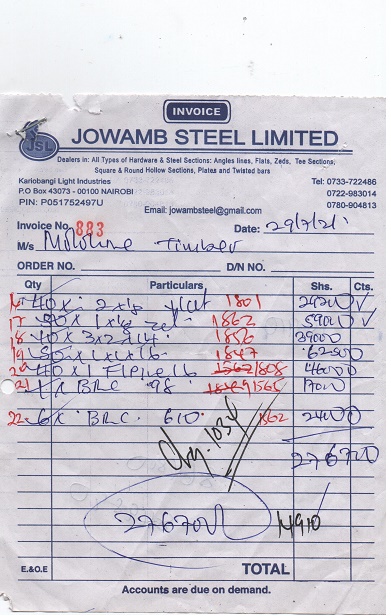 INVOICE
JSL
JOWAMB STEEL LIMITED
Dealers in: All Types of Hardware & Steel Sections: Angles lines, Flats, Zeds, Tee Sections,
Square & Round Hollow Sections, Plates and Twisted bars
Kariobangi Light Industries
P.O Box 43073 - 00100 NAIROBI
PIN: P051752497U
Tel: 0733-722486
0722-983014
0780-904813
Email: jowambsteel@gmail.com
Invoice No. 883 Date: 29/7/21
M/s Timber
ORDER NO. D/N NO.
Qty Particulars Shs. Cts.
40x 2x1½ 1801
17 1x1½ 1862 59000
18 40x 3x2x14 1856 39000
19 50x1x1x16 1847 62500
40x1 16 1808 46000
21 BRC 98 1565 17000
22 6x BRC 610 1862 24000
chq. 1034
276700
276700 14910
E.&O.E TOTAL
Accounts are due on demand.